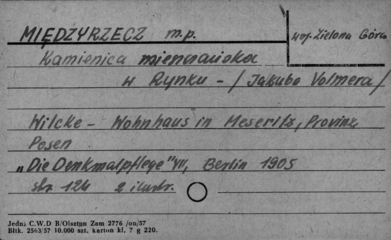 MIĘDZYRZECZ m.p.
woj. Zielona Góra
Kamienica mieszczańska
w Rynku - /Jakuba Volmera/
Wilcke - Wohnhaus in Meseritz, Provinz
Posen
„Die Denkmalpflege" VII, Berlin 1905
str. 124 2 ilustr.
Jedn: C.W.D B/Olsztyn Zam 2776 /on/57
Blkt. 2563/57 10.000 szt, karton kl. 7 g 220.